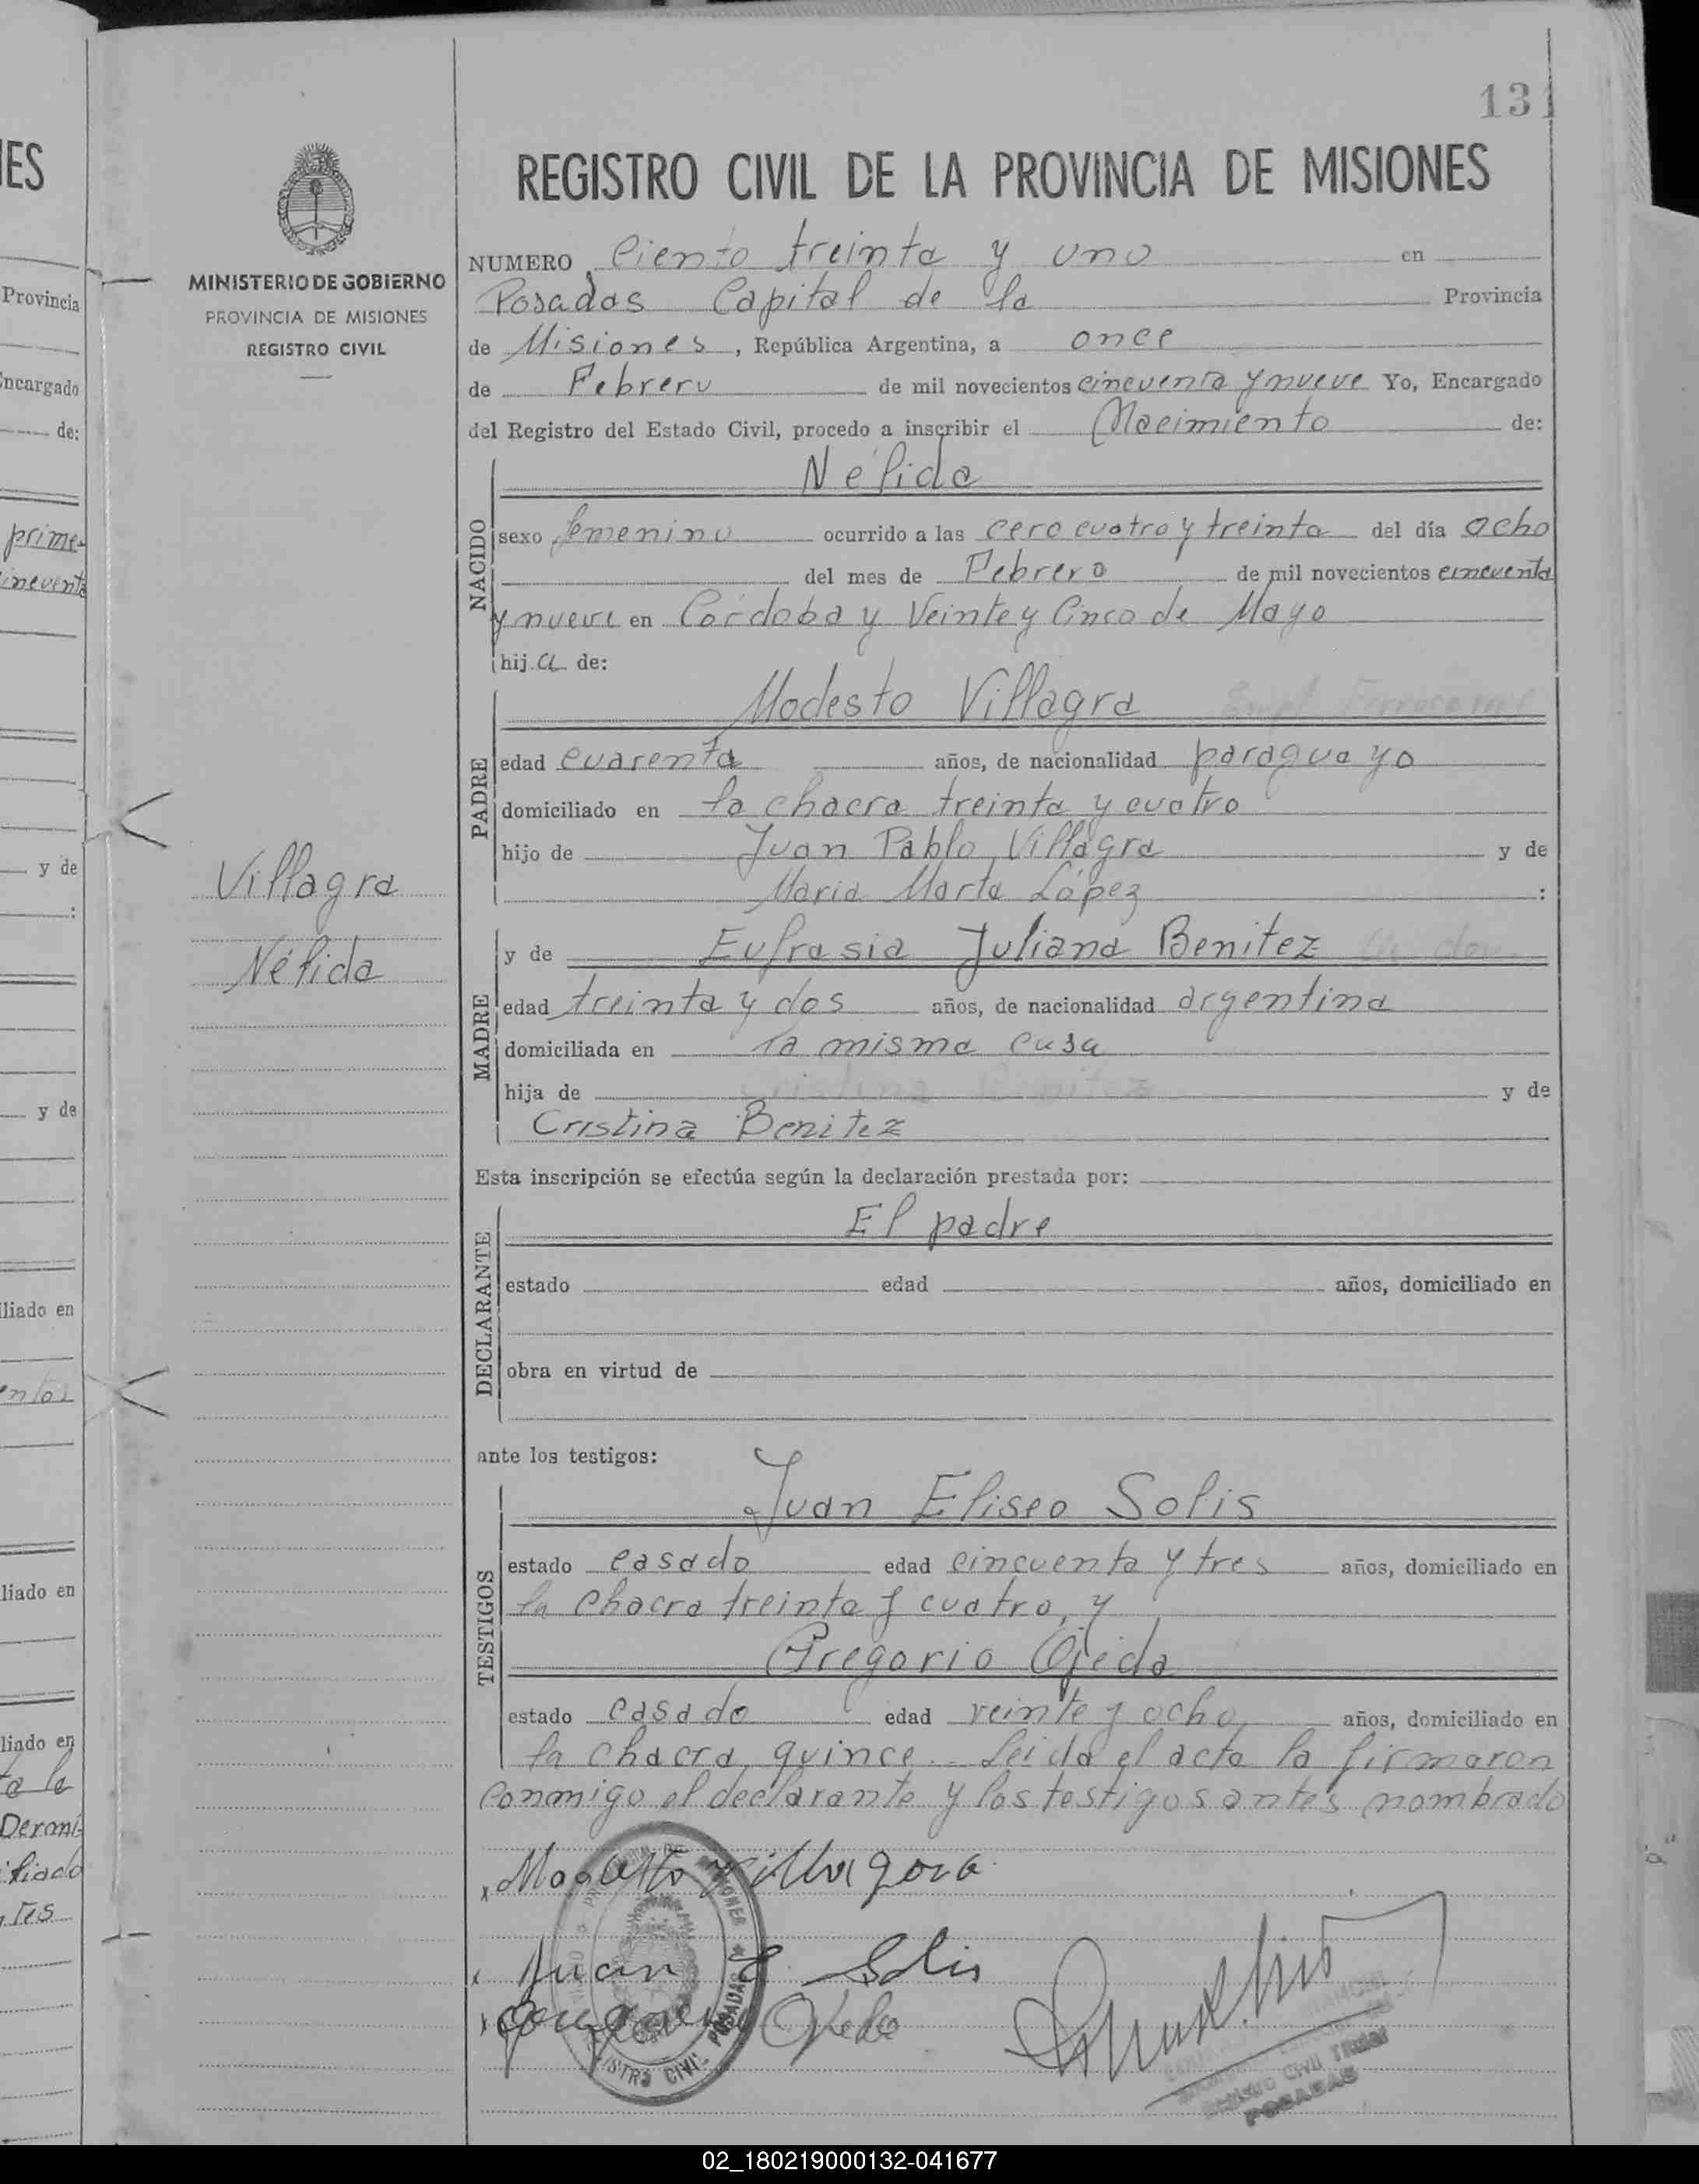 131
REGISTRO CIVIL DE LA PROVINCIA DE MISIONES
MINISTERIO DE GOBIERNO
PROVINCIA DE MISIONES
REGISTRO CIVIL
NUMERO Ciento treinta y uno en
Posadas Capital de la Provincia
de Misiones, República Argentina, a once
de Febrero de mil novecientos cincuenta y nueve Yo, Encargado
del Registro del Estado Civil, procedo a inscribir el Nacimiento de:
NACIDO
Nélida
sexo femenino ocurrido a las cero cuatro y treinta del día ocho
del mes de Febrero de mil novecientos cincuenta
y nueve en Córdoba y Veinte y Cinco de Mayo
hija de:
PADRE
Modesto Villagra
edad cuarenta años, de nacionalidad paraguayo
domiciliado en la chacra treinta y cuatro
hijo de Juan Pablo Villagra y de
Maria Marta López :
Villagra
Nélida
MADRE
y de Eufrasia Juliana Benitez
edad treinta y dos años, de nacionalidad argentina
domiciliada en la misma casa
hija de Cristina Benitez y de
Cristina Benitez
Esta inscripción se efectúa según la declaración prestada por:
DECLARANTE
El padre
estado edad años, domiciliado en
obra en virtud de
ante los testigos:
TESTIGOS
Juan Eliseo Solis
estado casado edad cincuenta y tres años, domiciliado en
la chacra treinta y cuatro, y
Gregorio Ojeda
estado casado edad veinte y ocho, años, domiciliado en
la chacra quince. Leida el acta la firmaron
conmigo el declarante y los testigos antes nombrado
Villagra
Juan E. Solis
Ojeda
REGISTRO CIVIL POSADAS
Registro Civil Titular
POSADAS
ES
Provincia
Encargado
de:
prime-
y de
:
y de
liado en
liado en
liado en
02_180219000132-041677